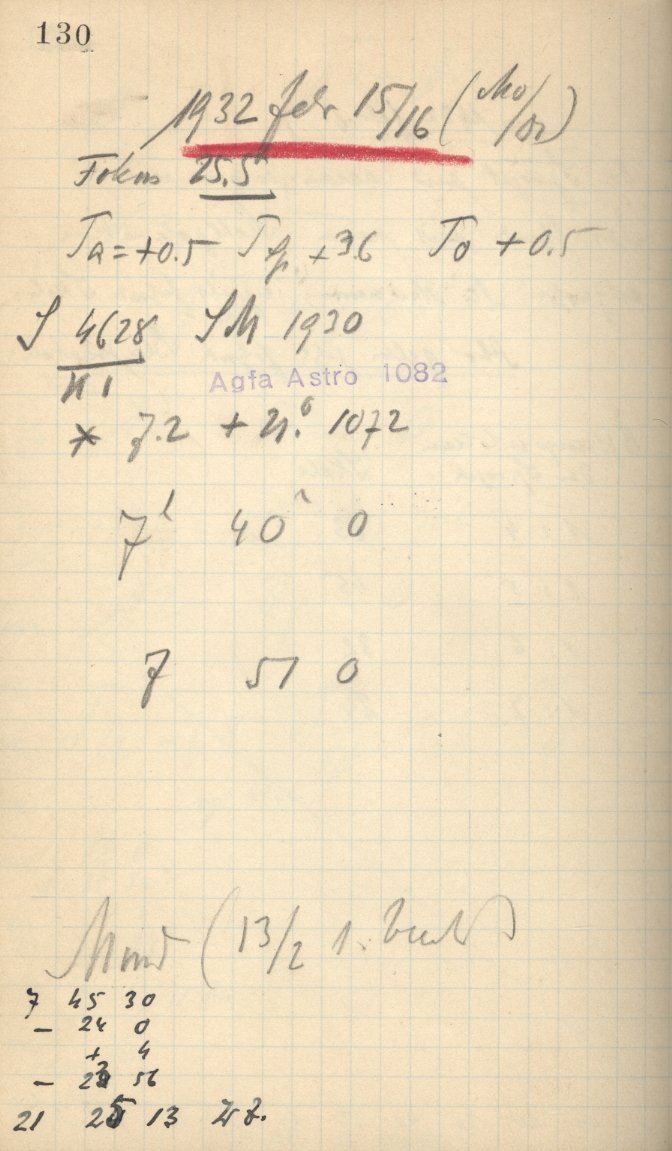 130
1932 Febr 15/16 (Mo/Di)
Fokus 25.5
Ta = +0.5 Tsp. +3.6 To +0.5
S 4628 SM 1930
N 1 Agfa Astro 1082
* 7.2 + 21.° 1072
7 40 0
7 51 0
Mond (13/2 1.
7 45 30
– 24 0
+ 4
– 23 56
21 25 13